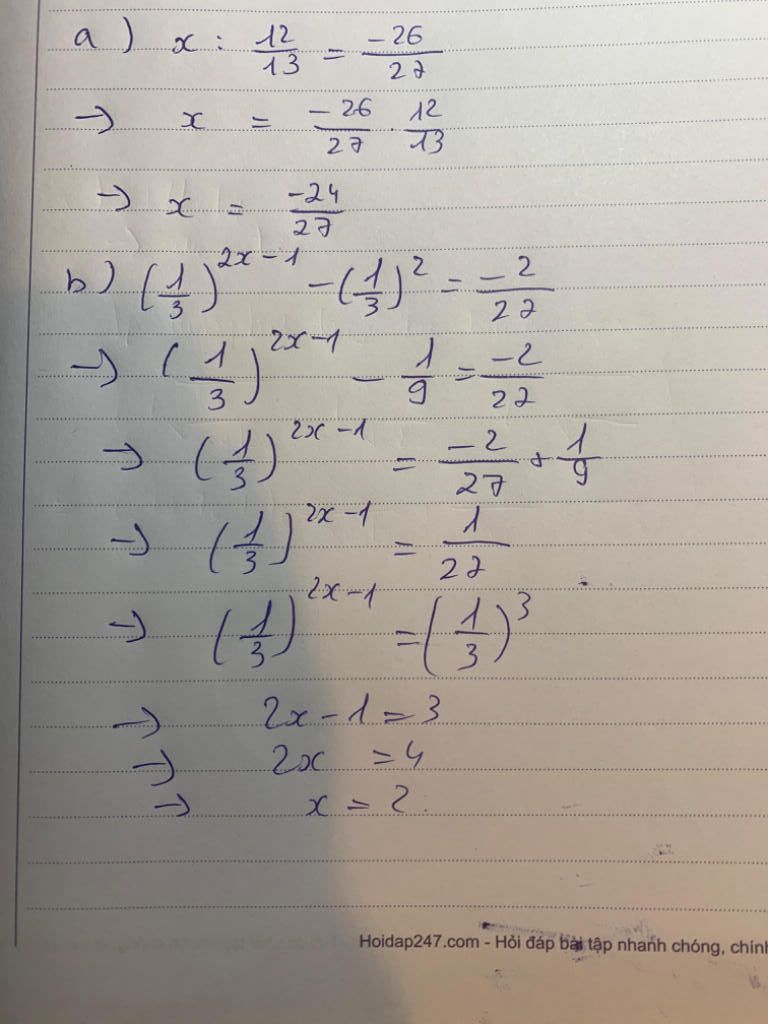 a) x : 12/13 = -26/27
→ x = -26/27 . 12/13
→ x = -24/27
b) (1/3)^2x-1 - (1/3)^2 = -2/27
→ (1/3)^2x-1 - 1/9 = -2/27
→ (1/3)^2x-1 = -2/27 + 1/9
→ (1/3)^2x-1 = 1/27
→ (1/3)^2x-1 = (1/3)^3
→ 2x-1 = 3
→ 2x = 4
→ x = 2.
Hoidap247.com - Hỏi đáp bài tập nhanh chóng, chính